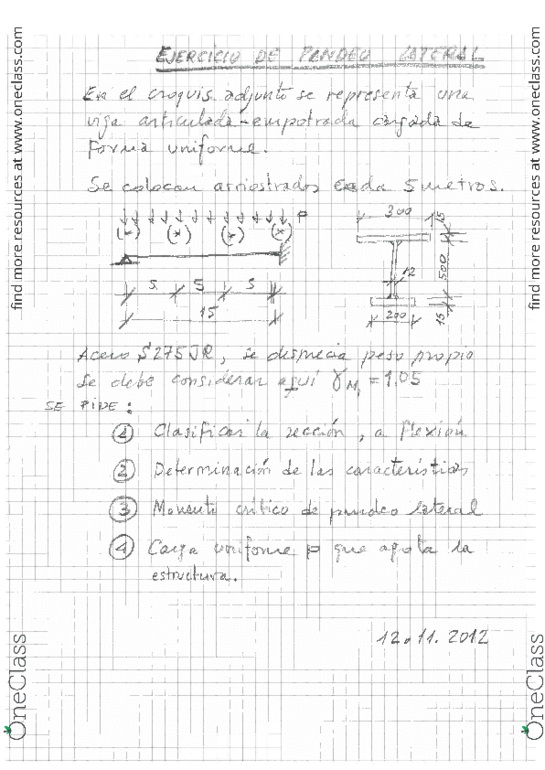 EJERCICIO DE PANDEO LATERAL
En el croquis adjunto se representa una
viga articulada-empotrada cargada de
forma uniforme.
Se colocan arriostrados cada 5 metros.
P
(x) (x) (x) (x)
5 5 5
15
300
15
12
500
200
15
Acero S275JR, se desprecia peso propio
Se debe considerar aquí γM1 = 1,05
SE PIDE:
1 Clasificar la sección, a flexión
2 Determinación de las características
3 Momento crítico de pandeo lateral
4 Carga uniforme p que agota la
estructura.
12.11.2012
find more resources at www.oneclass.com
find more resources at www.oneclass.com
OneClass
OneClass